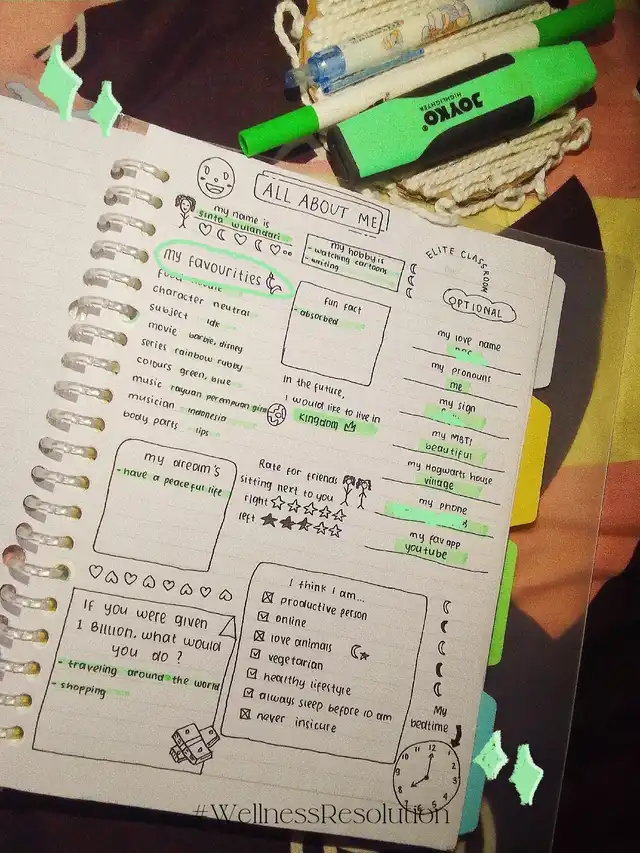 JOYKO
HIGHLIGHTER
ALL ABOUT ME
my name is
sinta wulandari
my hobby is
- watching cartoons
- writing
ELITE CLASSROOM
OPTIONAL
my favourites
food
character neutral
subject idk
movie barbie, disney
series rainbow rubby
colours green, blue
music rayuan perempuan gila
musician indonesia
body parts lips
fun fact
- absorbed
In the future,
I would like to live in
kingdom
my love name
my pronouns
me
my sign
my MBTI
beautiful
my Hogwarts house
village
my phone
my fav app
youtube
my dream's
- have a peaceful life
Rate for friends
sitting next to you
right
left
If you were given
1 Billion, what would
you do ?
- traveling around the world
- shopping
I think I am...
productive person
online
love animals
vegetarian
healthy lifestyle
always sleep before 10 am
never insicure
My
bedtime
12
1
2
3
4
5
6
7
8
9
10
11
#WellnessResolution